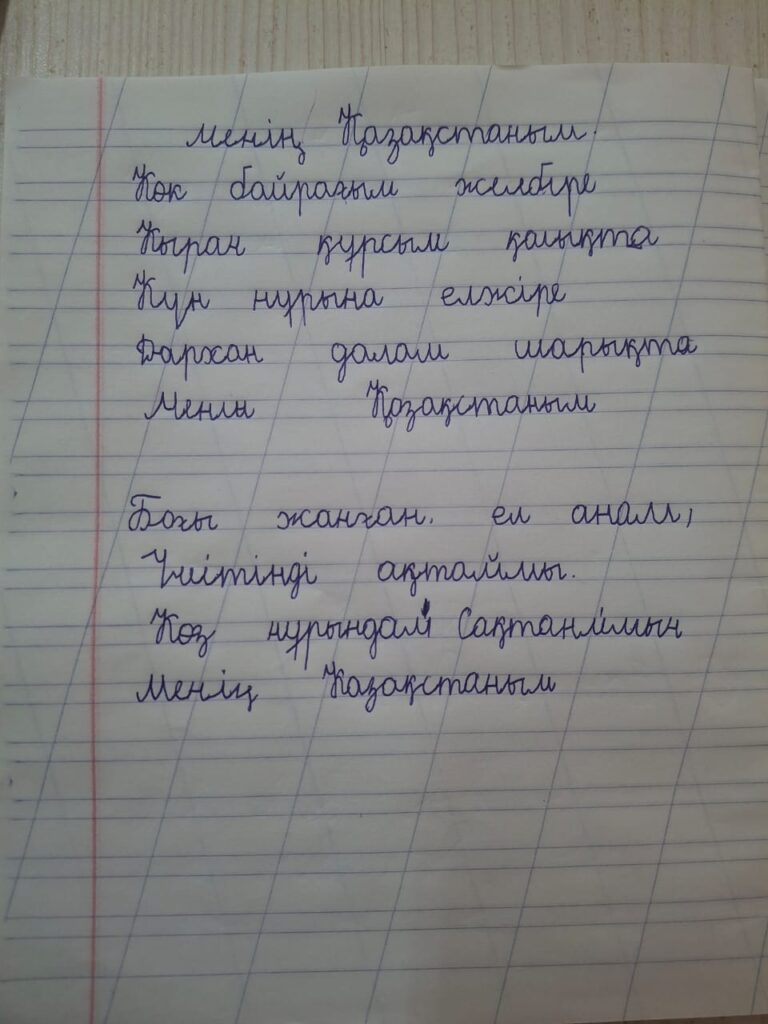 менің Қазақстаным.
Көк байрағым желбіре
Кыран құрсым қалықта
Күн нұрына елжіре
Дархан далам шарықта
Менін Қазақстаным
Бағы жанған. ел анам,
ақтаймы.
Көз нұрындай Сақтанймын
Менің Казақстаным